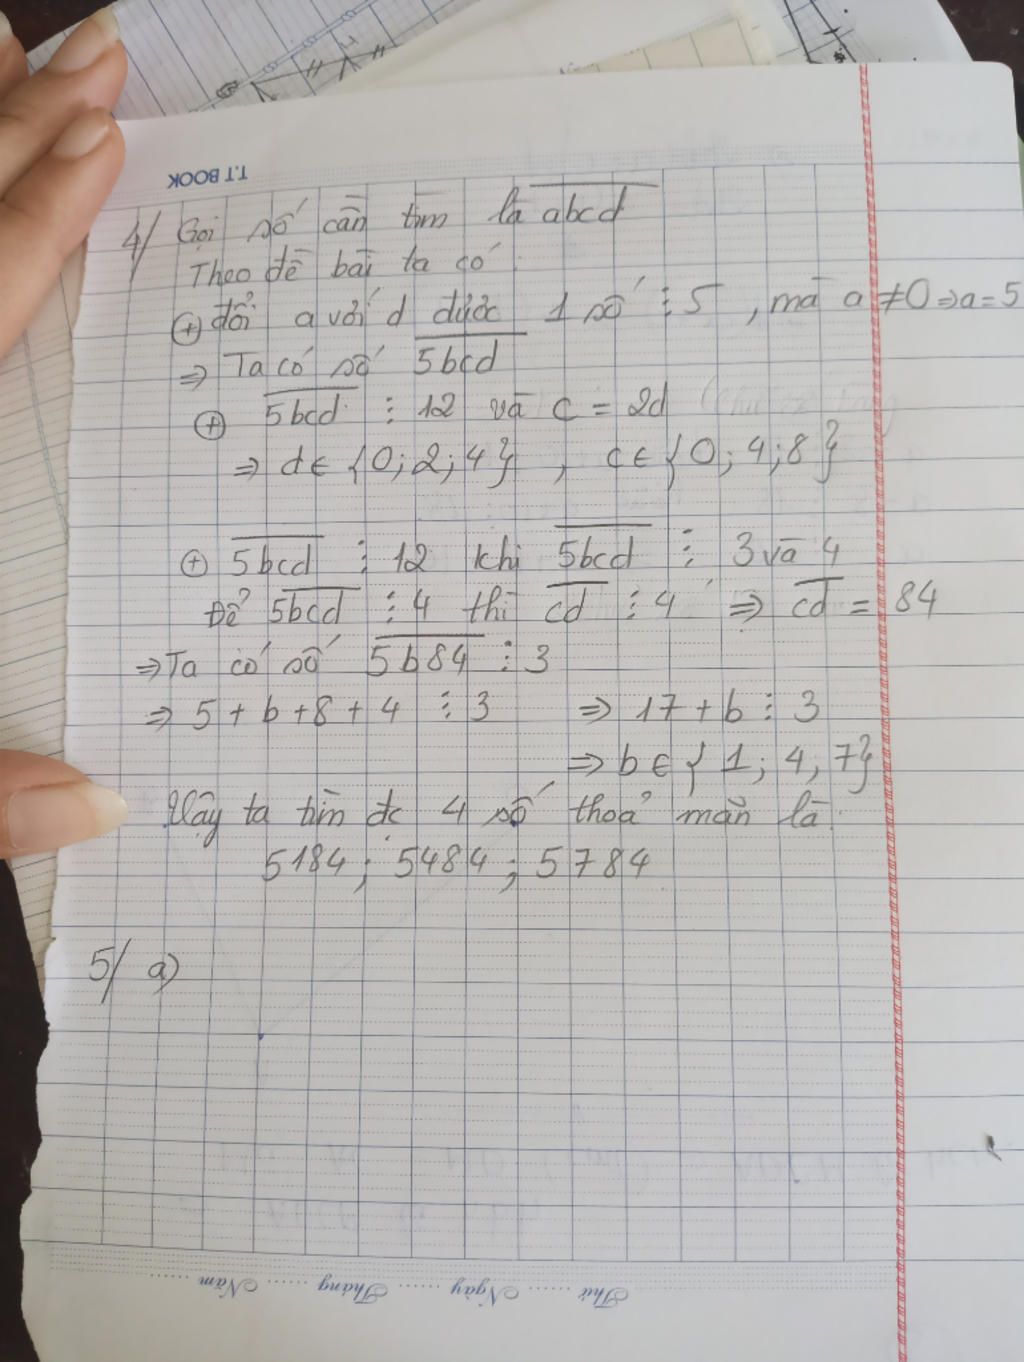 T.T BOOK
4/ Gọi số cần tìm là abcd
Theo đề bài ta có :
(+) đổi a với d được 1 số ⋮ 5 , mà a ≠ 0 ⇒ a = 5
⇒ Ta có số 5bcd
(+) 5bcd ⋮ 12 và c = 2d
⇒ d ∈ {0; 2; 4} , c ∈ {0; 4; 8}
(+) 5bcd ⋮ 12 khi 5bcd ⋮ 3 và 4
Để 5bcd ⋮ 4 thì cd ⋮ 4 ⇒ cd = 84
⇒ Ta có số 5b84 ⋮ 3
⇒ 5 + b + 8 + 4 ⋮ 3 ⇒ 17 + b ⋮ 3
⇒ b ∈ { 1; 4, 7}
Vậy ta tìm đc 4 số thoả mãn là:
5184; 5484; 5784
5/ a)
Thứ ...... Ngày ...... Tháng ...... Năm ......